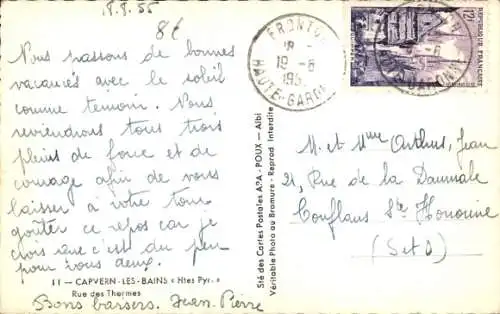 1.8.55
8f
Nous passons de bonnes
vacances avec le soleil
comme temoin. Nous
reviendrons tous trois
pleins de force et de
courage afin de vous
laisser à votre tour
goûter ce repos car je
crois que c'est du peu
pour vous deux.
11 — CAPVERN-LES-BAINS « Htes Pyr. »
Rue des Thermes
Bons baisers. Jean-Pierre
Sté des Cartes Postales APA - POUX — Albi
Véritable Photo au Bromure - Reprod Interdite
FRONTON
18 -
19 - 8
195
HAUTE-GARONNE
12F
REPUBLIQUE FRANÇAISE
M. et Mme Arthus, Jean
21, Rue de la Daumale
Conflans Ste Honorine
(S et O)